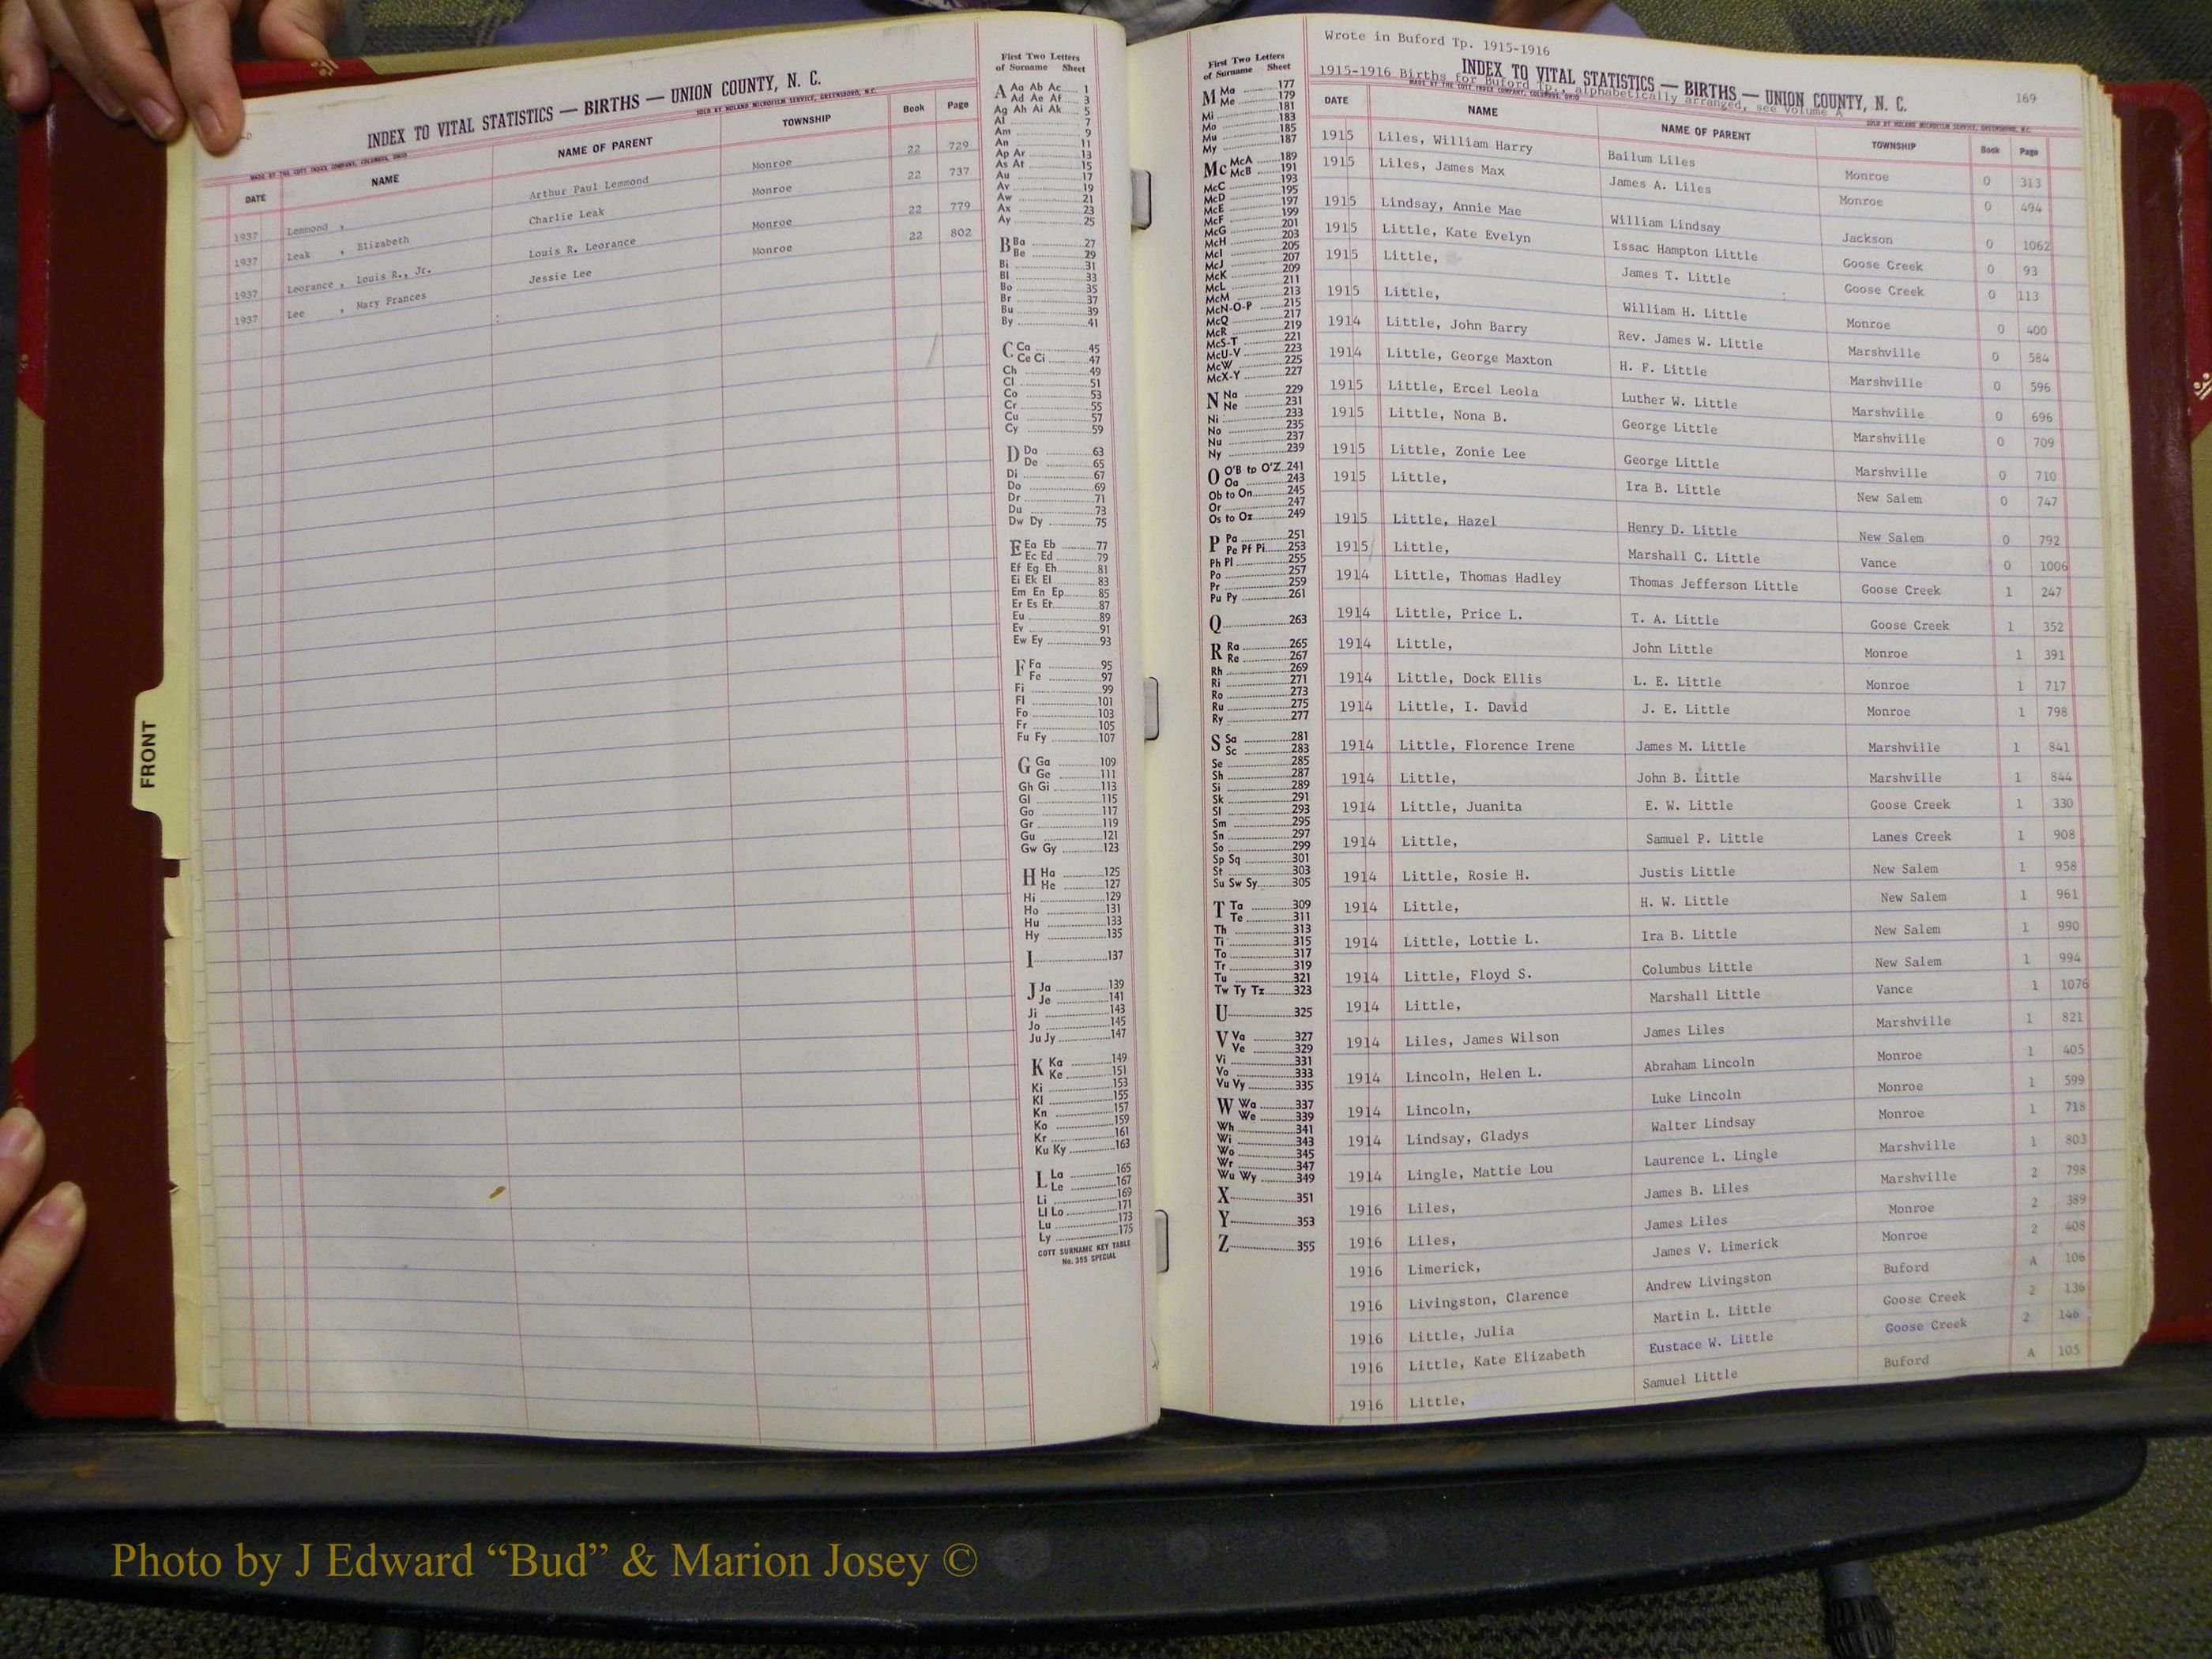 INDEX TO VITAL STATISTICS — BIRTHS — UNION COUNTY, N. C.
MADE BY THE COTT INDEX COMPANY, COLUMBUS, OHIO SOLD BY NOLAND MICROFILM SERVICE, GREENSBORO, N.C.
DATE NAME NAME OF PARENT TOWNSHIP Book Page
1937 Lemmond , Arthur Paul Lemmond Monroe 22 729
1937 Leak , Elizabeth Charlie Leak Monroe 22 737
1937 Leorance , Louis R., Jr. Louis R. Leorance Monroe 22 779
1937 Lee , Mary Frances Jessie Lee Monroe 22 802
First Two Letters
of Surname Sheet
A Aa Ab Ac 1
Ad Ae Af 3
Ag Ah Ai Ak 5
Al 7
Am 9
An 11
Ap Ar 13
As At 15
Au 17
Av 19
Aw 21
Ax 23
Ay 25
B Ba 27
Be 29
Bi 31
Bl 33
Bo 35
Br 37
Bu 39
By 41
C Ca 45
Ce Ci 47
Ch 49
Cl 51
Co 53
Cr 55
Cu 57
Cy 59
D Da 63
De 65
Di 67
Do 69
Dr 71
Du 73
Dw Dy 75
E Ea Eb 77
Ec Ed 79
Ef Eg Eh 81
Ei Ek El 83
Em En Ep 85
Er Es Et 87
Eu 89
Ev 91
Ew Ey 93
F Fa 95
Fe 97
Fi 99
Fl 101
Fo 103
Fr 105
Fu Fy 107
G Ga 109
Ge 111
Gh Gi 113
Gl 115
Go 117
Gr 119
Gu 121
Gw Gy 123
H Ha 125
He 127
Hi 129
Ho 131
Hu 133
Hy 135
I 137
J Ja 139
Je 141
Ji 143
Jo 145
Ju Jy 147
K Ka 149
Ke 151
Ki 153
Kl 155
Kn 157
Ko 159
Kr 161
Ku Ky 163
L La 165
Le 167
Li 169
Ll Lo 171
Lu 173
Ly 175
COTT SURNAME KEY TABLE
No. 355 SPECIAL
FRONT
First Two Letters
of Surname Sheet
M Ma 177
Me 179
Mi 181
Mo 183
Mu 185
My 187
Mc McA 189
McB 191
McC 193
McD 195
McE 197
McF 199
McG 201
McH 203
McI 205
McJ 207
McK 209
McL 211
McM 213
McN-O-P 215
McQ 217
McR 219
McS-T 221
McU-V 223
McW 225
McX-Y 227
N Na 229
Ne 231
Ni 233
No 235
Nu 237
Ny 239
O O'B to O'Z 241
Oa 243
Ob to On 245
Or 247
Os to Oz 249
P Pa 251
Pe Pf Pi 253
Ph Pl 255
Po 257
Pr 259
Pu Py 261
Q 263
R Ra 265
Re 267
Rh 269
Ri 271
Ro 273
Ru 275
Ry 277
S Sa 281
Sc 283
Se 285
Sh 287
Si 289
Sk 291
Sl 293
Sm 295
Sn 297
So 299
Sp Sq 301
St 303
Su Sw Sy 305
T Ta 309
Te 311
Th 313
Ti 315
To 317
Tr 319
Tu 321
Tw Ty Tz 323
U 325
V Va 327
Ve 329
Vi 331
Vo 333
Vu Vy 335
W Wa 337
We 339
Wh 341
Wi 343
Wo 345
Wr 347
Wu Wy 349
X 351
Y 353
Z 355
Wrote in Buford Tp. 1915-1916
INDEX TO VITAL STATISTICS — BIRTHS — UNION COUNTY, N. C. 169
1915-1916 Births for Buford Tp., alphabetically arranged, see Volume A
MADE BY THE COTT INDEX COMPANY, COLUMBUS, OHIO SOLD BY NOLAND MICROFILM SERVICE, GREENSBORO, N.C.
DATE NAME NAME OF PARENT TOWNSHIP Book Page
1915 Liles, William Harry Bailum Liles Monroe 0 313
1915 Liles, James Max James A. Liles Monroe 0 494
1915 Lindsay, Annie Mae William Lindsay Jackson 0 1062
1915 Little, Kate Evelyn Issac Hampton Little Goose Creek 0 93
1915 Little, James T. Little Goose Creek 0 113
1915 Little, William H. Little Monroe 0 400
1914 Little, John Barry Rev. James W. Little Marshville 0 584
1914 Little, George Maxton H. F. Little Marshville 0 596
1915 Little, Ercel Leola Luther W. Little Marshville 0 696
1915 Little, Nona B. George Little Marshville 0 709
1915 Little, Zonie Lee George Little Marshville 0 710
1915 Little, Ira B. Little New Salem 0 747
1915 Little, Hazel Henry D. Little New Salem 0 792
1915 Little, Marshall C. Little Vance 0 1006
1914 Little, Thomas Hadley Thomas Jefferson Little Goose Creek 1 247
1914 Little, Price L. T. A. Little Goose Creek 1 352
1914 Little, John Little Monroe 1 391
1914 Little, Dock Ellis L. E. Little Monroe 1 717
1914 Little, I. David J. E. Little Monroe 1 798
1914 Little, Florence Irene James M. Little Marshville 1 841
1914 Little, John B. Little Marshville 1 844
1914 Little, Juanita E. W. Little Goose Creek 1 330
1914 Little, Samuel P. Little Lanes Creek 1 908
1914 Little, Rosie H. Justis Little New Salem 1 958
1914 Little, H. W. Little New Salem 1 961
1914 Little, Lottie L. Ira B. Little New Salem 1 990
1914 Little, Floyd S. Columbus Little New Salem 1 994
1914 Little, Marshall Little Vance 1 1076
1914 Liles, James Wilson James Liles Marshville 1 821
1914 Lincoln, Helen L. Abraham Lincoln Monroe 1 405
1914 Lincoln, Luke Lincoln Monroe 1 599
1914 Lindsay, Gladys Walter Lindsay Monroe 1 718
1914 Lingle, Mattie Lou Laurence L. Lingle Marshville 1 803
1916 Liles, James B. Liles Marshville 2 798
1916 Liles, James Liles Monroe 2 389
1916 Limerick, James V. Limerick Monroe 2 408
1916 Livingston, Clarence Andrew Livingston Buford A 106
1916 Little, Julia Martin L. Little Goose Creek 2 136
1916 Little, Kate Elizabeth Eustace W. Little Goose Creek 2 146
1916 Little, Samuel Little Buford A 105
Photo by J Edward “Bud” & Marion Josey ©